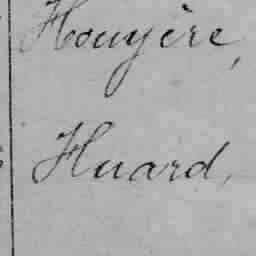 Houyère,
Huard,